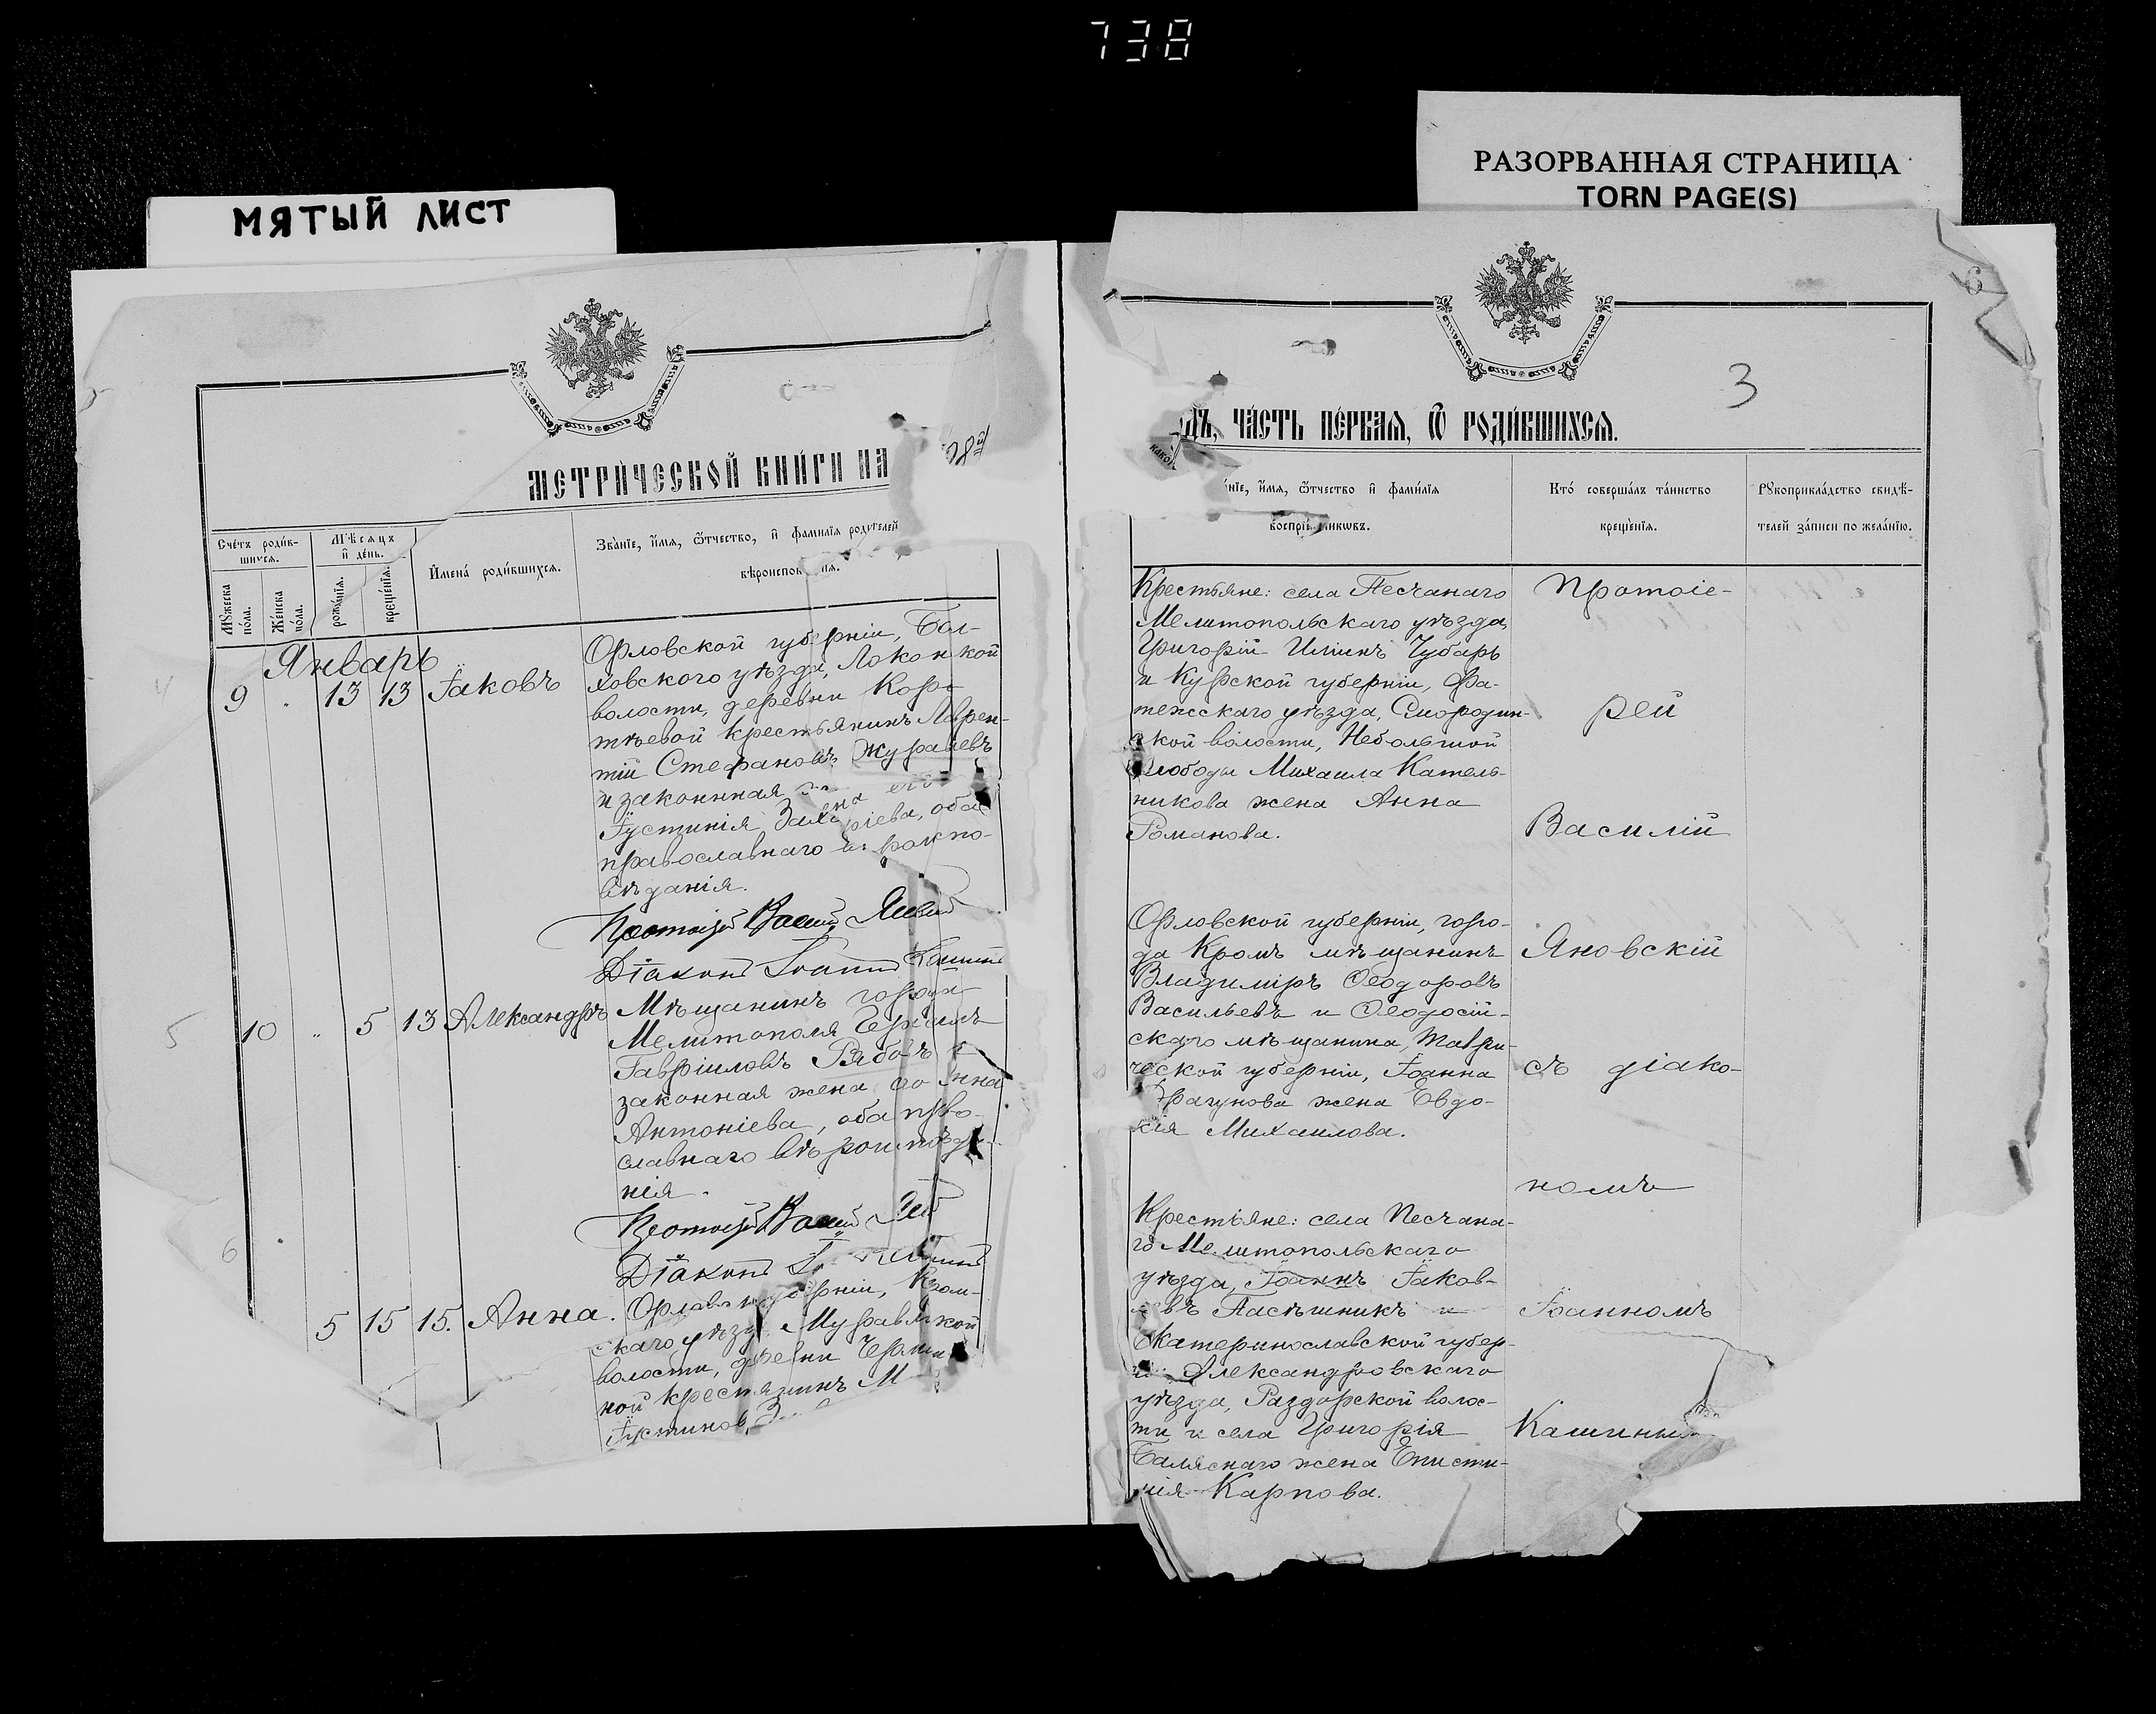 738
РАЗОРВАННАЯ СТРАНИЦА
TORN PAGE(S)
МЯТЫЙ ЛИСТ
МЕТРИЧЕСКОЙ КНИГИ НА
Счетъ родив-
шихся.
Мужеска пола.
Женска пола.
Мѣсяцъ
и день.
рожденія.
крещенія.
Имена родившихся.
Званіе, имя, отчество, и фамилія родителей
Январь
9 13 13 Іаковъ
Орловской губерніи, Бол-
ховского уѣзда,
волости, деревни Кор-
тѣевой крестьянинъ Лаврен-
тій Стефановъ Журавлевъ
и законная жена его
Іустинія Захаріева, оба
православнаго вѣроиспо-
вѣданія.
Протоіерей Василій
Діаконъ Іоаннъ Кашинъ
10 5 13 Александръ
Мѣщанинъ города
Мелитополя
Гавріиловъ Рябовъ и
законная жена его Анна
Антоніева, оба право-
славнаго вѣроисповѣда-
нія.
Протоіерей Василій
Діаконъ
5 15 15. Анна.
Орловской губерніи, Кром-
скаго уѣзда Муравской
волости, деревни
ной крестьянинъ М
Іустиновъ
6
3
дъ, ЧАСТЬ ПЕРВАЯ, Ѿ РОДИВШИХСЯ.
ніе, имя, отчество и фамилія
воспріемниковъ.
Кто совершалъ таинство
крещенія.
Рукоприкладство свидѣ-
телей записи по желанію.
Крестьяне: села Песчанаго
Мелитопольскаго уѣзда,
Григорій Иліинъ Чубарь
и Курской губерніи, Фа-
тежскаго уѣзда, Смородин-
ской волости, Небольшой
слободы Михаила Катель-
никова жена Анна
Романова.
Орловской губерніи, горо-
да Кромъ мѣщанинъ
Владиміръ Ѳеодоровъ
Васильевъ и Ѳеодосій-
скаго мѣщанина, Таври-
ческой губерніи, Іоанна
жена Евдо-
кія Михаилова.
Крестьяне: села Песчана-
го Мелитопольскаго
уѣзда, Іоаннъ Іаков-
левъ Пасѣшникъ и
Екатеринославской губер-
Александровскаго
уѣзда, Раздорской волос-
ти и села Григорія
Баляснаго жена Еписти-
мія Карпова.
Протоіе-
рей
Василій
Яновскій
съ діако-
номъ
Іоанномъ
Кашинымъ